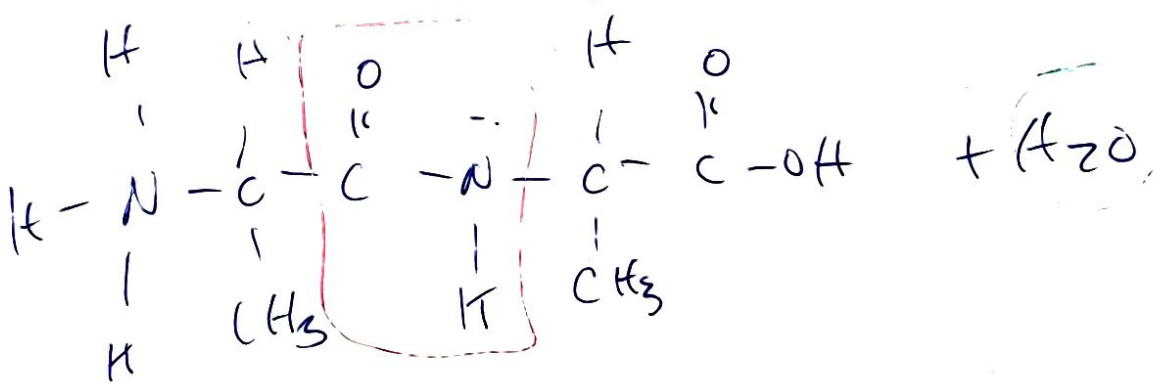 H H O H O
H - N - C - C - N - C - C - OH + H2O
H CH3 H CH3